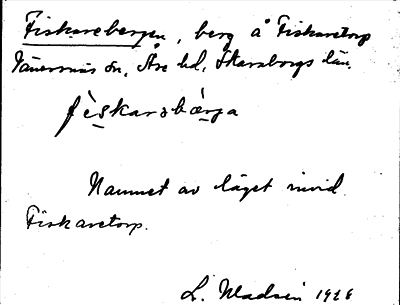 Fiskarebergen, berg å Fiskaretorp
Vänersnäs sn, Åse hd, Skaraborgs län.
fèskarsbærga
Namnet av läget invid
Fiskaretorp.
L. Madsén 1926